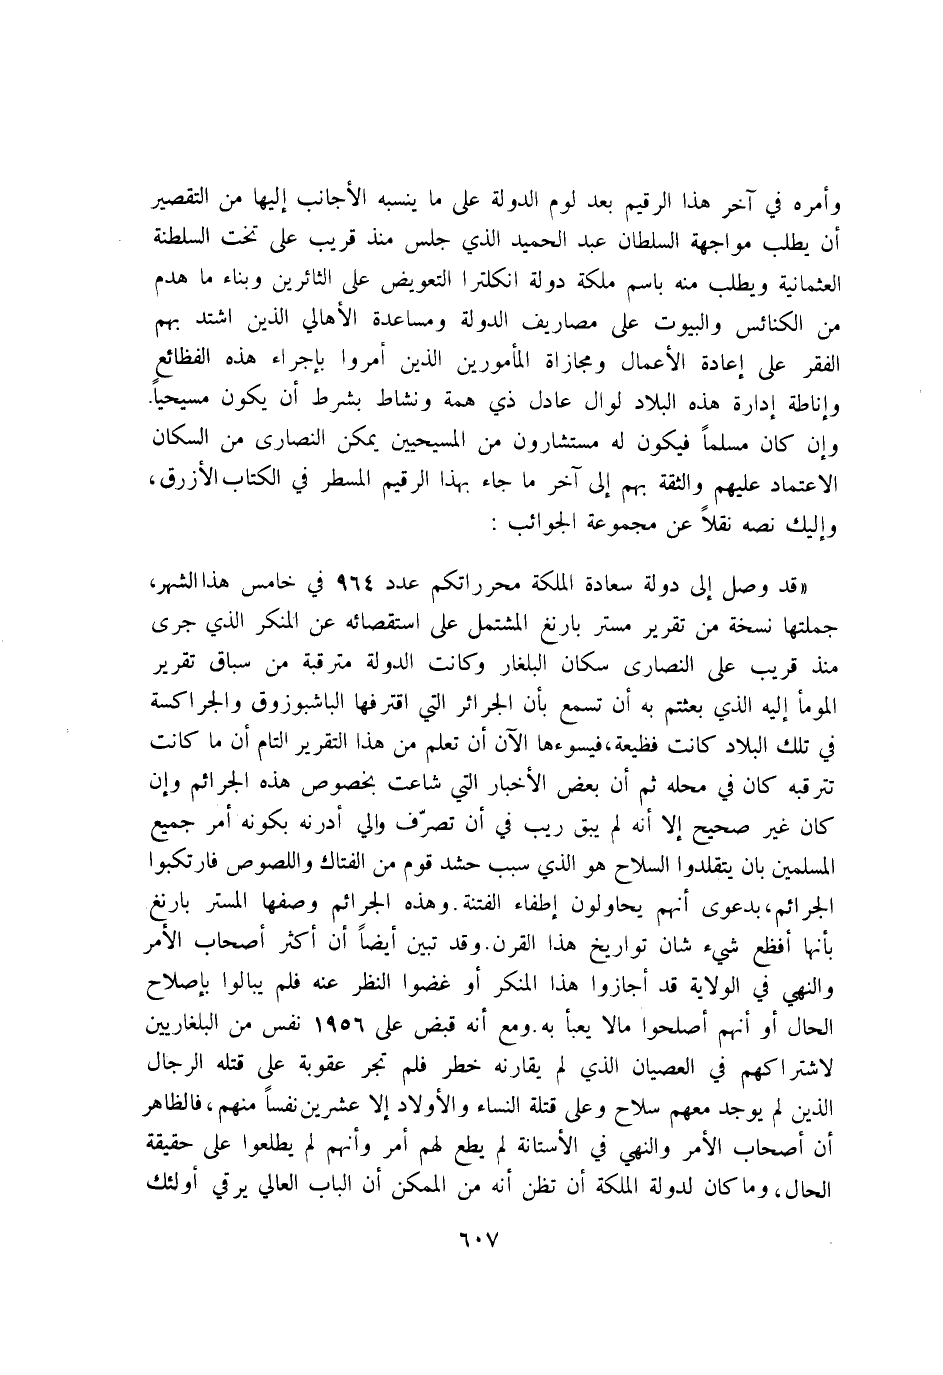 وأمره في آخر هذا الرقيم بعد لوم الدولة على ما ينسبه الأجانب إليها من التقصير
أن يطلب مواجهة السلطان عبد الحميد الذي جلس منذ قريب على تخت السلطنة
العثمانية ويطلب منه باسم ملكة دولة انكلترا التعويض على الثائرين وبناء ما هدم
من الكنائس والبيوت على مصاريف الدولة ومساعدة الأهالي الذين اشتد بهم
الفقر على إعادة الأعمال ومجازاة المأمورين الذين أمروا بإجراء هذه الفظائع
وإناطة إدارة هذه البلاد لوال عادل ذي همة ونشاط بشرط أن يكون مسيحياً.
وإن كان مسلماً فيكون له مستشارون من المسيحيين يمكن النصارى من السكان
الاعتماد عليهم والثقة بهم إلى آخر ما جاء بهذا الرقيم المسطر في الكتاب الأزرق،
وإليك نصه نقلاً عن مجموعة الجوائب :
«قد وصل إلى دولة سعادة الملكة محرراتكم عدد ٩٦٤ في خامس هذا الشهر،
جملتها نسخة من تقرير مستر بارنغ المشتمل على استقصائه عن المنكر الذي جرى
منذ قريب على النصارى سكان البلغار وكانت الدولة مترقبة من سباق تقرير
المومأ إليه الذي بعثتم به أن تسمع بأن الجرائر التي اقترفها الباشبوزوق والجراكسة
في تلك البلاد كانت فظيعة،فيسوءها الآن أن تعلم من هذا التقرير التام أن ما كانت
تترقبه كان في محله ثم أن بعض الأخبار التي شاعت بخصوص هذه الجرائم وإن
كان غير صحيح إلا أنه لم يبق ريب في أن تصرّف والي أدرنه بكونه أمر جميع
المسلمين بان يتقلدوا السلاح هو الذي سبب حشد قوم من الفتاك واللصوص فارتكبوا
الجرائم،بدعوى أنهم يحاولون إطفاء الفتنة.وهذه الجرائم وصفها المستر بارنغ
بأنها أفظع شيء شان تواريخ هذا القرن.وقد تبين أيضاً أن أكثر أصحاب الأمر
والنهي في الولاية قد أجازوا هذا المنكر أو غضوا النظر عنه فلم يبالوا بإصلاح
الحال أو أنهم أصلحوا مالا يعبأ به.ومع أنه قبض على ١٩٥٦ نفس من البلغاريين
لاشتراكهم في العصيان الذي لم يقارنه خطر فلم تجر عقوبة على قتله الرجال
الذين لم يوجد معهم سلاح وعلى قتلة النساء والأولاد إلا عشرين نفساً منهم،فالظاهر
أن أصحاب الأمر والنهي في الأستانة لم يطع لهم أمر وأنهم لم يطلعوا على حقيقة
الحال، وما كان لدولة الملكة أن تظن أنه من الممكن أن الباب العالي يرقي أولئك
٦٠٧